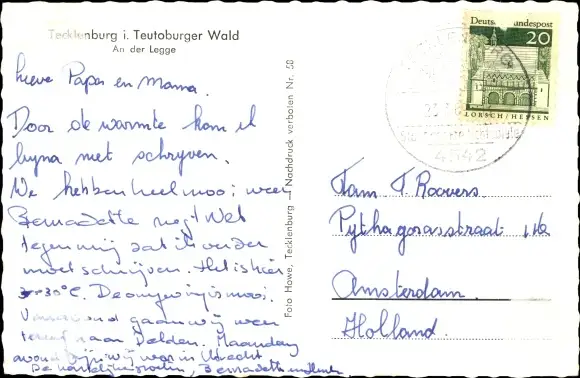 Tecklenburg i. Teutoburger Wald
An der Legge
lieve Papa en Mama.
Door de warmte kom ik
bijna niet schrijven.
We hebben heel mooi weer
Bernadette zegt net
tegen mij dat ik verder
moet schrijven. Het is hier
30°C. De omgeving is mooi.
gaan wij weer
terug naar Delden. Maandag
avond zijn wij weer in Utrecht
De hartelijke groeten, Bernadette en
Foto Howe, Tecklenburg — Nachdruck verboten Nr. 58
Deutsche Bundespost
20
LORSCH/HESSEN
4542
Fam T. Roovers.
Pythagorasstraat
Amsterdam.
Holland.